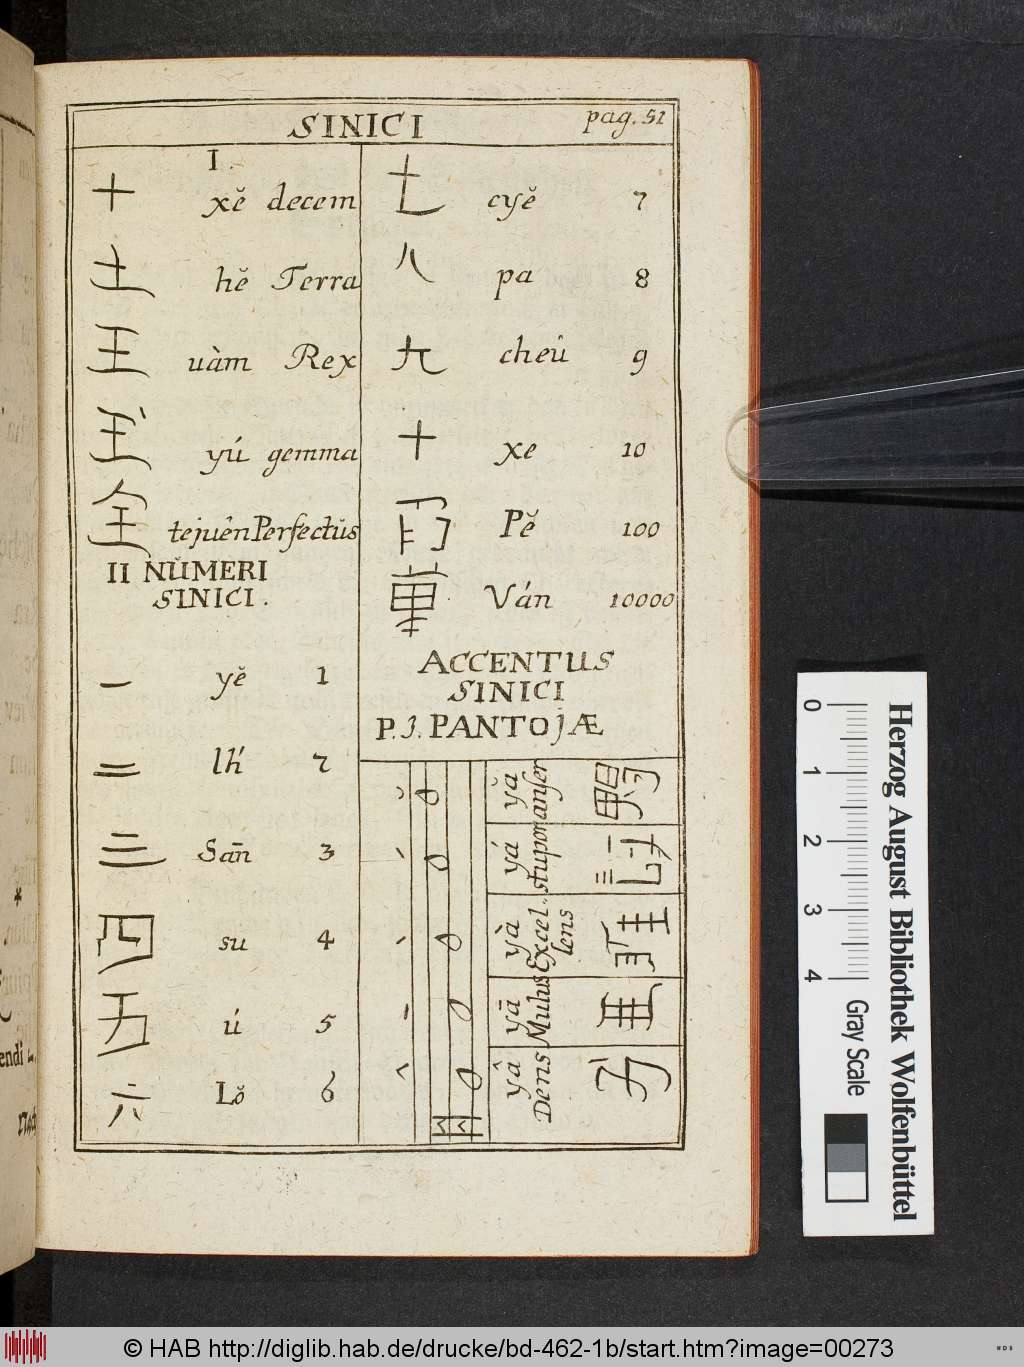 SINICI
pag. 51
I.
十 xĕ decem
土 hĕ Terra
王 uàm Rex
玉 yú gemma
全 tejuên Perfectus
II NUMERI
SINICI.
一 yĕ 1
二 lh́ 2
三 San̄ 3
四 su 4
五 ú 5
六 Lŏ 6
七 cyĕ 7
八 pa 8
九 cheù 9
十 xe 10
百 Pĕ 100
萬 Ván 10000
ACCENTUS
SINICI
P. J. PANTOJÆ
yă anser
yá stupor
yà Excel-
lens
yā Mulus
yâ Dens 牙
Herzog August Bibliothek Wolfenbüttel
0 1 2 3 4
Gray Scale
© HAB http://diglib.hab.de/drucke/bd-462-1b/start.htm?image=00273